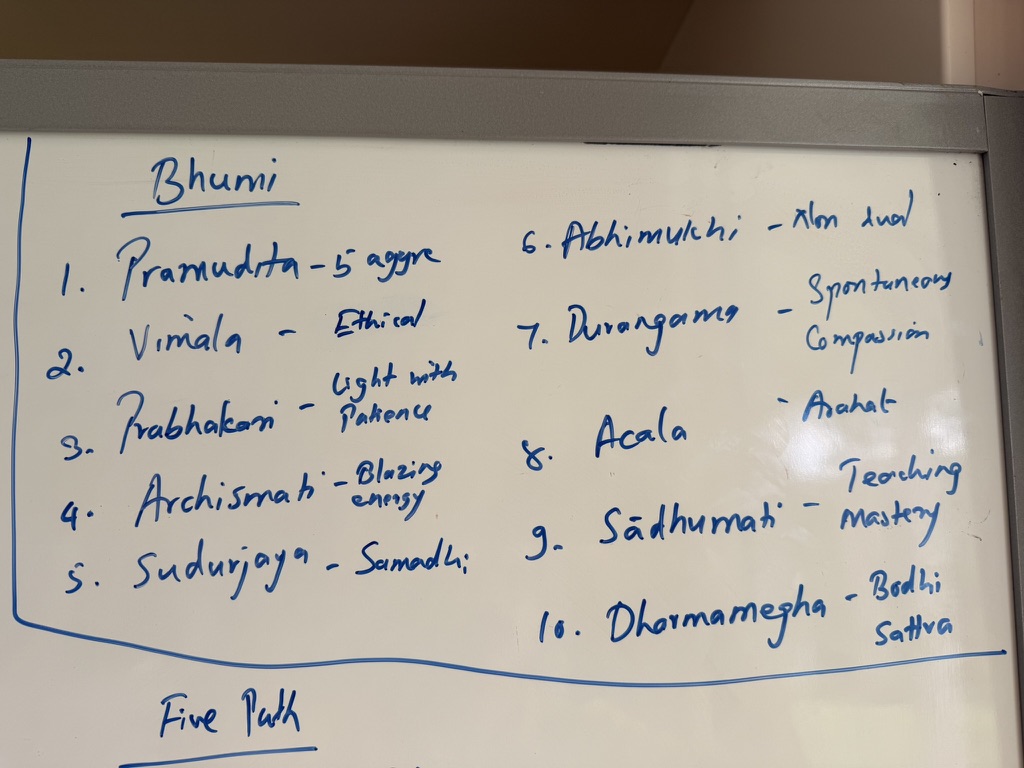 Bhumi
1. Pramudita - 5 aggre
2. Vimala - Ethical
3. Prabhakari - Light with
Patience
4. Archismati - Blazing
energy
5. Sudurjaya - Samadhi
6. Abhimukhi - Non dual
7. Durangama - Spontaneous
Compassion
8. Acala - Arahat
9. Sādhumati - Teaching
Mastery
10. Dharmamegha - Bodhi
Sattva
Five Path